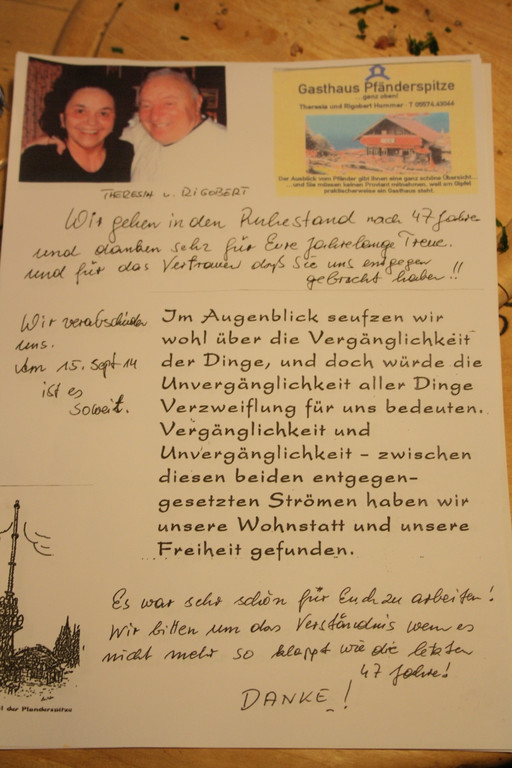 Gasthaus Pfänderspitze
...ganz oben!
Theresle und Rigobert Hommer · T 05574.43064
Der Ausblick vom Pfänder gibt Ihnen eine ganz schöne Übersicht....
...und Sie müssen keinen Proviant mitnehmen, weil am Gipfel
praktischerweise ein Gasthaus steht.
THERESIA u. RIGOBERT
Wir gehen in den Ruhestand nach 47 Jahre
und danken sehr für Eure Jahrelange Treue.
und für das Vertrauen daß Sie uns entgegen
gebracht haben!!
Wir verabschieden
uns.
Am 15. Sept 14
ist es
soweit.
Im Augenblick seufzen wir
wohl über die Vergänglichkeit
der Dinge, und doch würde die
Unvergänglichkeit aller Dinge
Verzweiflung für uns bedeuten.
Vergänglichkeit und
Unvergänglichkeit – zwischen
diesen beiden entgegen-
gesetzten Strömen haben wir
unsere Wohnstatt und unsere
Freiheit gefunden.
Es war sehr schön für Euch zu arbeiten!
Wir bitten um das Verständnis wenn es
nicht mehr so klappt wie die letzten
47 Jahre!
DANKE!
der Pfänderspitze